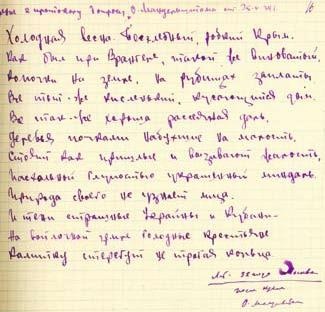 к протоколу допроса О. Мандельштама от
Холодная весна. Бесхлебный, робкий Крым.
Как был при Врангеле, такой же виноватый.
Колючки на земле, на рубищах заплаты
Все тот-же кисленький, кусающийся дым.
Все так-же хороша рассеянная даль.
Деревья почками набухшие на малость,
Стоят как пришлые и вызывает жалость,
Пасхальной глупостью украшенный миндаль.
Природа своего не узнает лица.
И тени страшные Украйны и Кубани -
На войлочной земле голодные крестьяне
Калитку стерегут не трогая кольца
Москва
после Крыма
О. Мандельштам